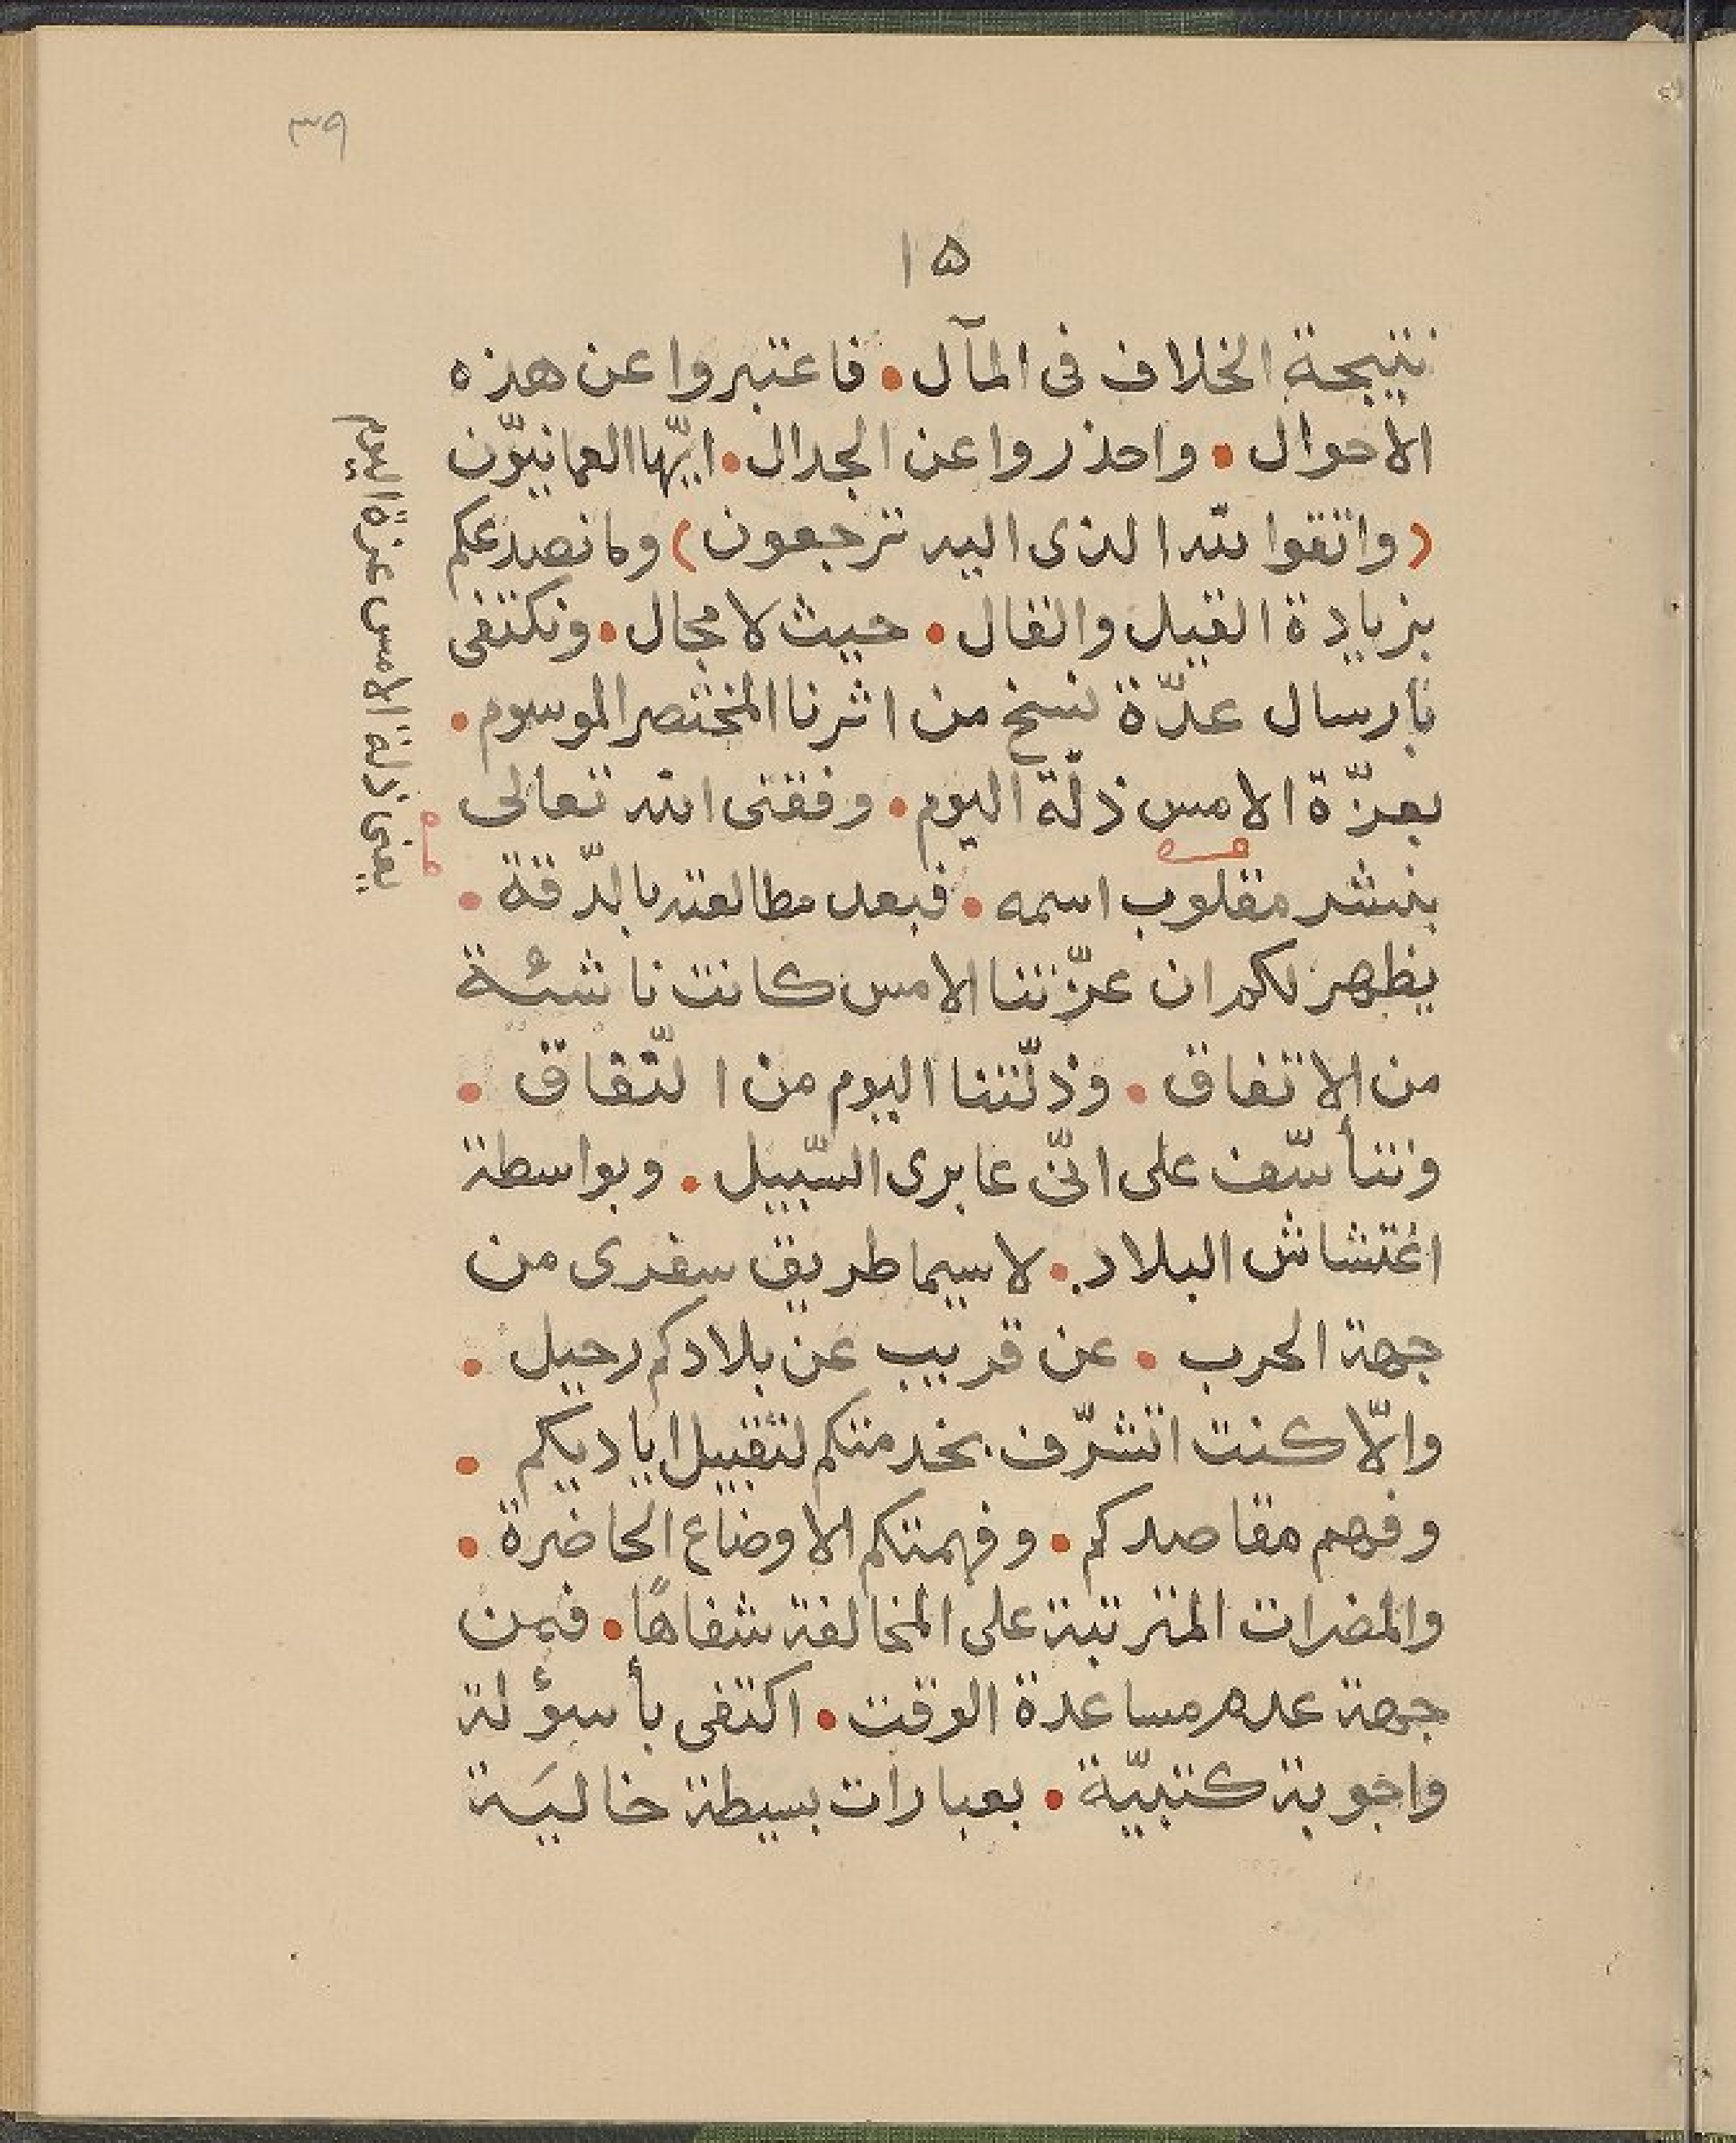 ٣٩
١٥
نتيجة الخلاف فى المآل • فاعتبروا عن هذه
الاحوال • واحذروا عن الجدال • ايّها العمانيّون
(واتقوا لله الذى اليه ترجعون) وما نصدعكم
بزيادة القيل والقال • حيث لا مجال • ونكتفى
بأرسال عدّة نسخ من اثرنا المختصر الموسوم •
بعزّة الامس ذلّة اليوم • وفقنى الله تعالى
بنشر مقلوب اسمه • فبعد مطالعته بالدّقة •
يظهر لكم ان عزّتنا الامس كانت ناشئة
من الاتفاق • وذلّتنا اليوم من النّفاق •
ونتأسّف على انّى عابرى السّبيل • وبواسطة
اغتشاش البلاد • لاسيما طريق سفرى من
جهة الحرب • عن قريب عن بلادكم رحيل •
والّا كنت اتشرّف بخدمتكم لتقبيل اياديكم •
وفهم مقاصدكم • وفهمتكم الاوضاع الحاضرة •
والمضرات المترتبة على المخالفة شفاهًا • فمن
جهة عدم مساعدة الوقت • اكتفى بأسؤلة
واجوبة كتبيّة • بعبارات بسيطة خاليَة
يعنى ذلة الامس عزة اليوم